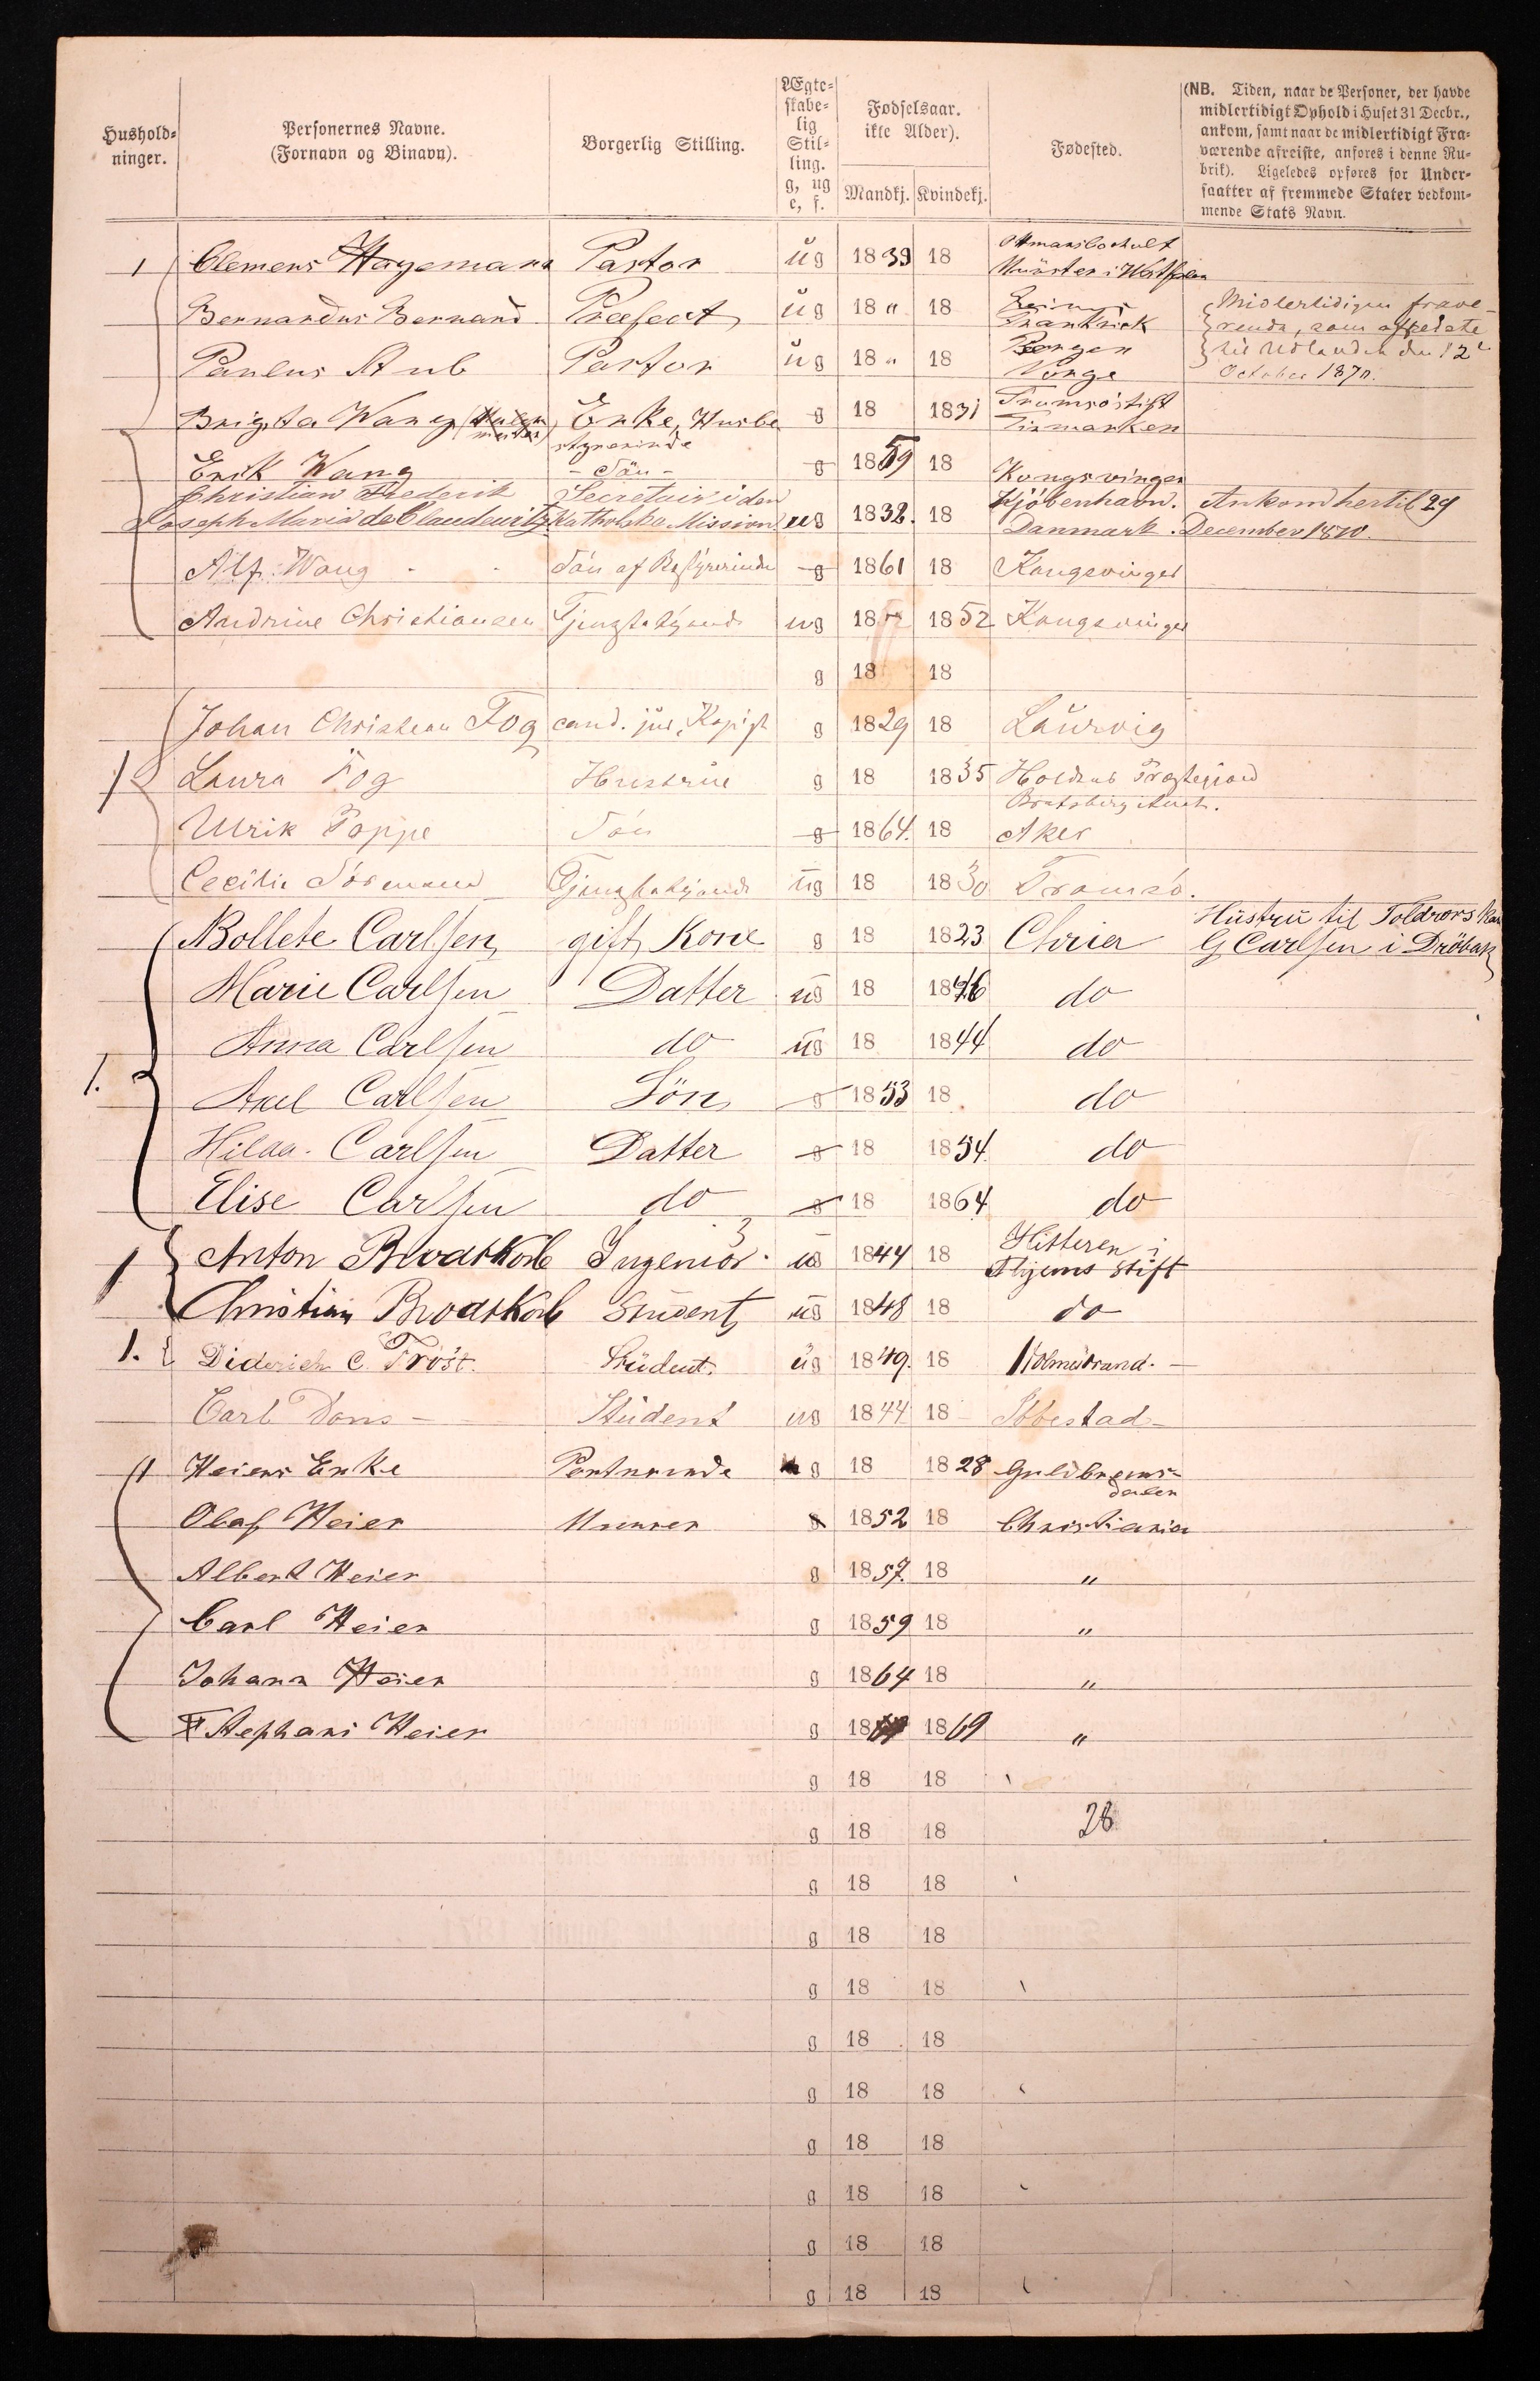 Hushold-
ninger.
Personernes Navne.
(Fornavn og Binavn).
Borgerlig Stilling.
Ægte-
skabe-
lig
Stil-
ling.
g, ug
e, f.
Fødselsaar.
ikke Alder).
Mandkj. Kvindekj.
Fødested.
(NB. Tiden, naar de Personer, der havde
midlertidigt Ophold i Huset 31 Decbr.,
ankom, samt naar de midlertidigt Fra-
værende afreiste, anføres i denne Ru-
brik). Ligeledes opføres for Under-
saatter af fremmede Stater vedkom-
mende Stats Navn.
1 Clemens Hagemann Pastor ug 1839 18 Münster i Westfalen
Bernardus Bernard Præfect ug 18 " 18 Frankrick Midlertidigen frave-
rende, som afreiste
Paulus Stub Pastor ug 18 " 18 Bergen Norge til Udlandet den 12
October 1870.
Brigita Wang Enke, Husbe g 18 1831 Tromsöstift
styrerinde Finmarken
Erik Wang - Sön - g 1859 18 Kongsvinger
Christian Frederik Secretair i den Kjöbenhavn. Ankom hertil 29
Joseph Maria de Claudewitz Katholske Mission ug 1832. 18 Danmark. December 1870.
Alf Wang Sön af Bestyrerinde g 1861 18 Kongsvinger
Andrine Christiansen Tjenestetyende ug 18 1852 Kongsvinger
g 18 18
Johan Christian Fog cand. jur, Kopist g 1829 18 Laurvig
1 Laura Fog Hustrue g 18 1835 Holdens Præstegjeld
Bratsberg Amt.
Ulrik Poppe Sön g 1864. 18 Aker
Cecilie Tjenestetyende ug 18 1830 Tromsö.
Bollete Carlsen gift Kone g 18 1823 Chria Hustru til Toldrorskarl
G Carlsen i Dröbak
Marie Carlsen Datter ug 18 1846 do
Anna Carlsen do ug 18 1844 do
1. Axel Carlsen Sön g 1853 18 do
Hilda. Carlsen Datter g 18 1854. do
Elise Carlsen do g 18 1864 do
1 Anton Brodtkorb Ingeniör. ug 1844 18 Hitteren i
Thjems Stift
Christian Brodtkorb Student ug 1848 18 do
1. Diderich C. Frost. Student. ug 1849. 18 Holmestrand. -
Carl Dons - Student ug 1844 18 Ibbestad -
1 Heiers Enke Portnerinde g 18 1828 Guldbrens-
dalen
Olaf Heier Murer g 1852 18 Christiania
Albert Heier g 1857. 18 "
Carl Heier g 1859 18 "
Johann Heier g 1864 18 "
Stephani Heier g 18 1869 "
g 18 18
g 18 18 28
g 18 18
g 18 18
g 18 18
g 18 18
g 18 18
g 18 18
g 18 18
g 18 18
g 18 18